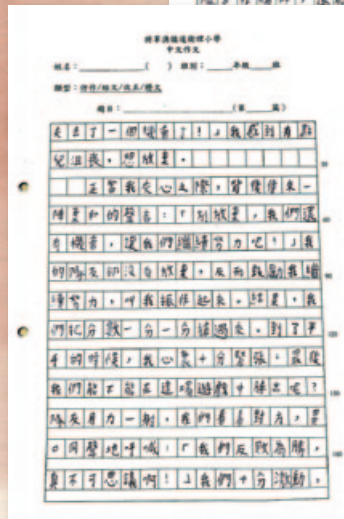 將軍澳循道衛理小學
中文作文
姓名：( ) 班別：年級 班
類型：
題目：(第 篇)
失去了一個機會了！」我感到有點
兒沮喪，想放棄。
正當我灰心之際，背後傳來一
陣柔和的聲音：「別放棄，我們還
有機會，讓我們繼續努力吧！」我
的隊友卻沒有放棄，反而鼓勵我繼
續努力，叫我振作起來。結果，我
們把分數一分一分追過來。到了平
手的時候，我心裏十分緊張，最後
我們能不能在這場遊戲中勝出呢？
隊友用力一射，我們看看對方，異
口同聲地呼喊：「我們反敗為勝，
真不可思議啊！」我們十分激動，